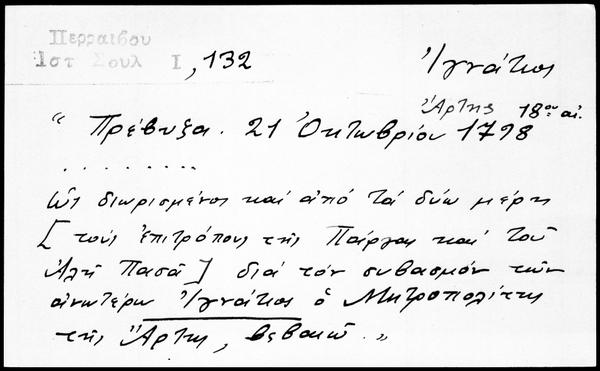 Περραιβου
Ιστ Σουλ Ι, 132
Ἰγνάτιος
Ἄρτης 18ου αἰ.
“ Πρέβυζα. 21 Ὀκτωβρίου 1798
. . . . . . . .
Ὡς διωρισμένος καί ἀπό τά δύω μέρη
[ τούς ἐπιτρόπους τῆς Πάργας καί τοῦ
Ἀλῆ Πασᾶ ] διά τόν συβασμόν τῶν
ἀνωτέρω Ἰγνάτιος ὁ Μητροπολίτης
τῆς Ἄρτης, βεβαιῶ „